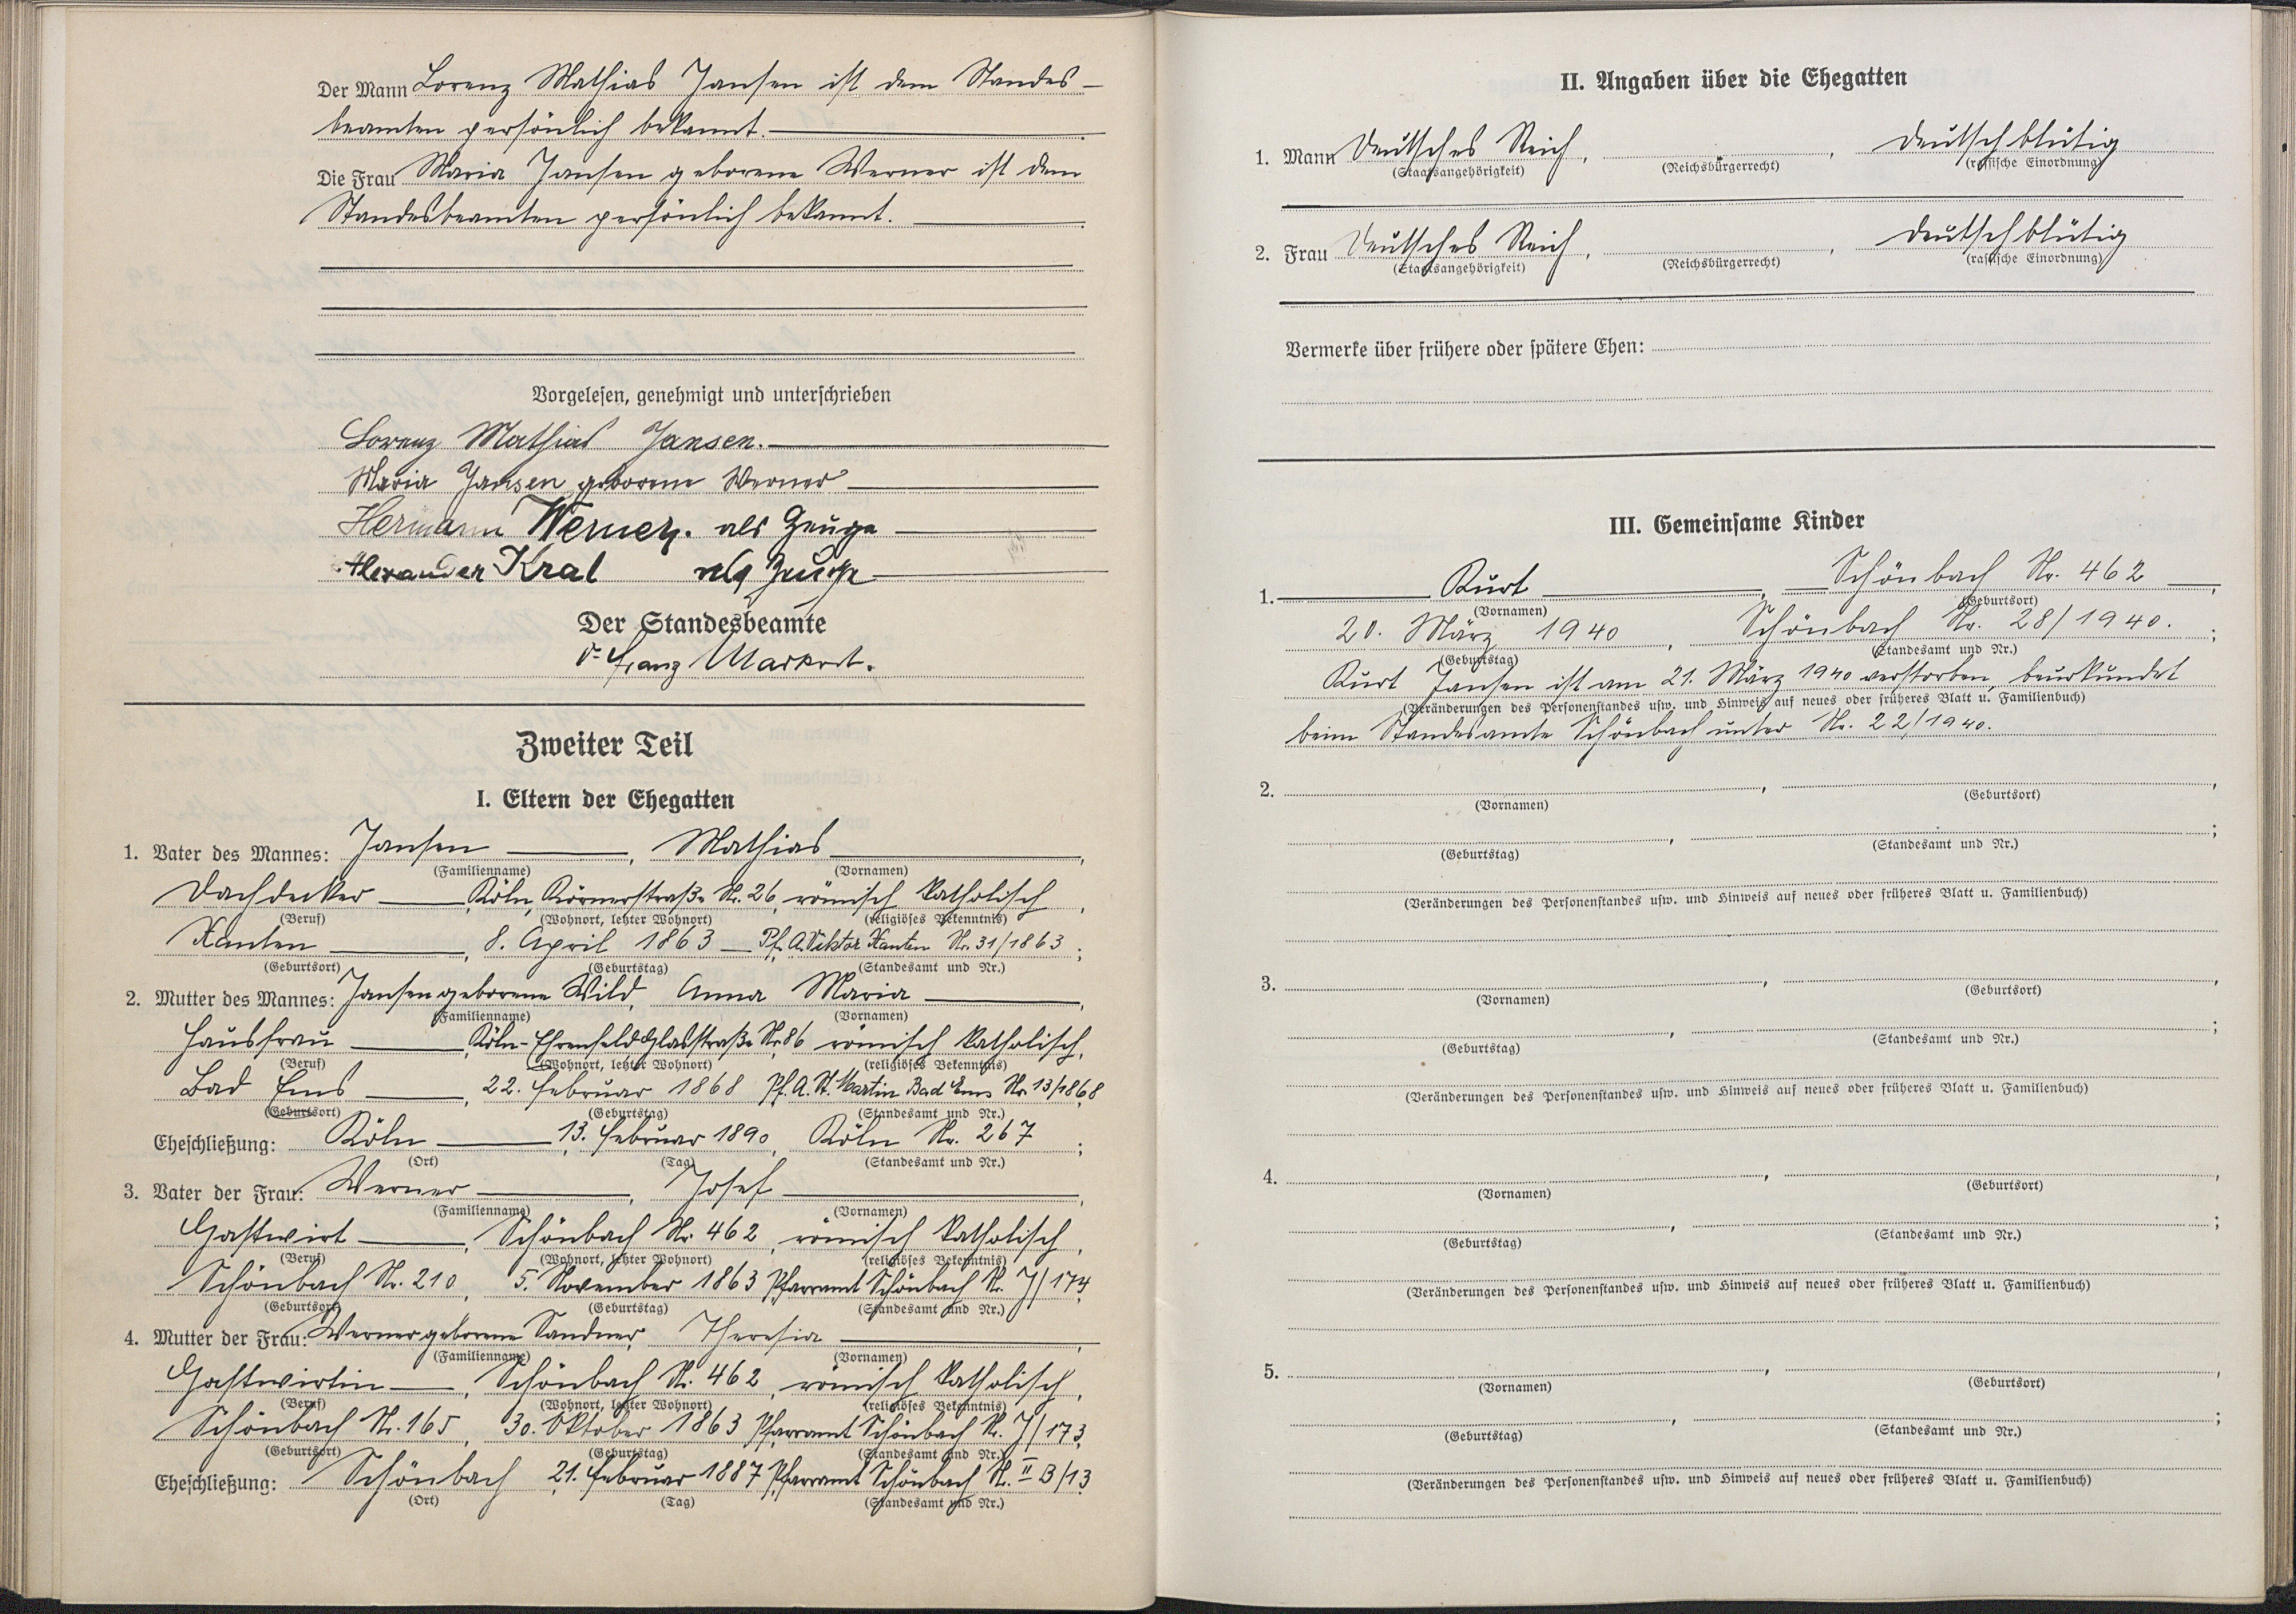 Der Mann Lorenz Mathias Jansen ist dem Standes-
beamten persönlich bekannt.
Die Frau Maria Jansen geborene Werner ist dem
Standesbeamten persönlich bekannt.
Vorgelesen, genehmigt und unterschrieben
Lorenz Mathias Jansen.
Maria Jansen geborene Werner
Hermann Werner. als Zeuge
Alexander Kral als Zeuge
Der Standesbeamte
Franz Markert.
Zweiter Teil
I. Eltern der Ehegatten
1. Vater des Mannes: Jansen, Mathias,
(Familienname) (Vornamen)
Dachdecker, Köln, Körnerstraße Nr. 26, römisch katholisch,
(Beruf) (Wohnort, letzter Wohnort) (religiöses Bekenntnis)
Xanten, 8. April 1863 Pf. A. Viktor Xanten Nr. 31/1863;
(Geburtsort) (Geburtstag) (Standesamt und Nr.)
2. Mutter des Mannes: Jansen geborene Wild, Anna Maria,
(Familienname) (Vornamen)
Hausfrau, Köln-Ehrenfeld Glasstraße Nr 86 römisch katholisch,
(Beruf) (Wohnort, letzter Wohnort) (religiöses Bekenntnis)
Bad Ems, 22. Februar 1868 Pf. A. St. Martin Bad Ems Nr. 13/1868
(Geburtsort) (Geburtstag) (Standesamt und Nr.)
Eheschließung: Köln, 13. Februar 1890, Köln Nr. 267;
(Ort) (Tag) (Standesamt und Nr.)
3. Vater der Frau: Werner, Josef,
(Familienname) (Vornamen)
Gastwirt, Schönbach Nr. 462, römisch katholisch,
(Beruf) (Wohnort, letzter Wohnort) (religiöses Bekenntnis)
Schönbach Nr. 210, 5. November 1863 Pfarramt Schönbach Nr. J/174
(Geburtsort) (Geburtstag) (Standesamt und Nr.)
4. Mutter der Frau: Werner geborene Sandner, Theresia,
(Familienname) (Vornamen)
Gastwirtin, Schönbach Nr. 462, römisch katholisch,
(Beruf) (Wohnort, letzter Wohnort) (religiöses Bekenntnis)
Schönbach Nr. 165, 30. Oktober 1863 Pfarramt Schönbach Nr. J/173
(Geburtsort) (Geburtstag) (Standesamt und Nr.)
Eheschließung: Schönbach, 21. Februar 1887 Pfarramt Schönbach Nr. II B/13
(Ort) (Tag) (Standesamt und Nr.)
II. Angaben über die Ehegatten
1. Mann Deutsches Reich, , deutschblütig
(Staatsangehörigkeit) (Reichsbürgerrecht) (rassische Einordnung)
2. Frau Deutsches Reich, , deutschblütig
(Staatsangehörigkeit) (Reichsbürgerrecht) (rassische Einordnung)
Vermerke über frühere oder spätere Ehen:
III. Gemeinsame Kinder
1. Kurt, Schönbach Nr. 462,
(Vornamen) (Geburtsort)
20. März 1940, Schönbach Nr. 28/1940.;
(Geburtstag) (Standesamt und Nr.)
Kurt Jansen ist am 21. März 1940 verstorben, beurkundet
(Veränderungen des Personenstandes usw. und Hinweis auf neues oder früheres Blatt u. Familienbuch)
beim Standesamte Schönbach unter Nr. 22/1940.
2. , ,
(Vornamen) (Geburtsort)
, ;
(Geburtstag) (Standesamt und Nr.)
(Veränderungen des Personenstandes usw. und Hinweis auf neues oder früheres Blatt u. Familienbuch)
3. , ,
(Vornamen) (Geburtsort)
, ;
(Geburtstag) (Standesamt und Nr.)
(Veränderungen des Personenstandes usw. und Hinweis auf neues oder früheres Blatt u. Familienbuch)
4. , ,
(Vornamen) (Geburtsort)
, ;
(Geburtstag) (Standesamt und Nr.)
(Veränderungen des Personenstandes usw. und Hinweis auf neues oder früheres Blatt u. Familienbuch)
5. , ,
(Vornamen) (Geburtsort)
, ;
(Geburtstag) (Standesamt und Nr.)
(Veränderungen des Personenstandes usw. und Hinweis auf neues oder früheres Blatt u. Familienbuch)